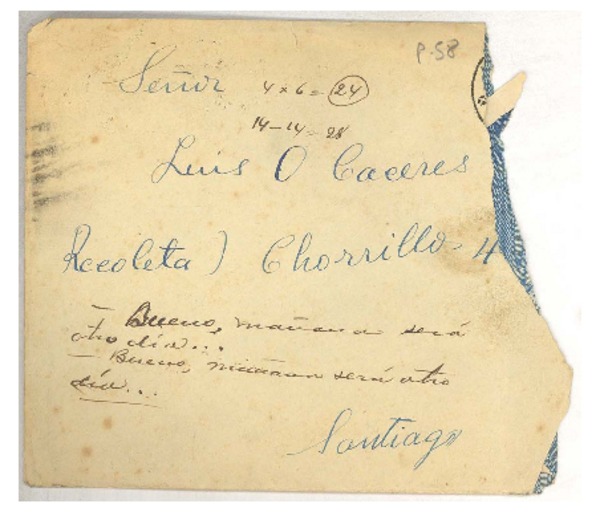 P-58
Señor 4 x 6 = 24
14-14=28
Luis O Caceres
Recoleta) Chorrillo-4
— Bueno, mañana será
otro día...
— Bueno, mañana será otro
día...
Santiago